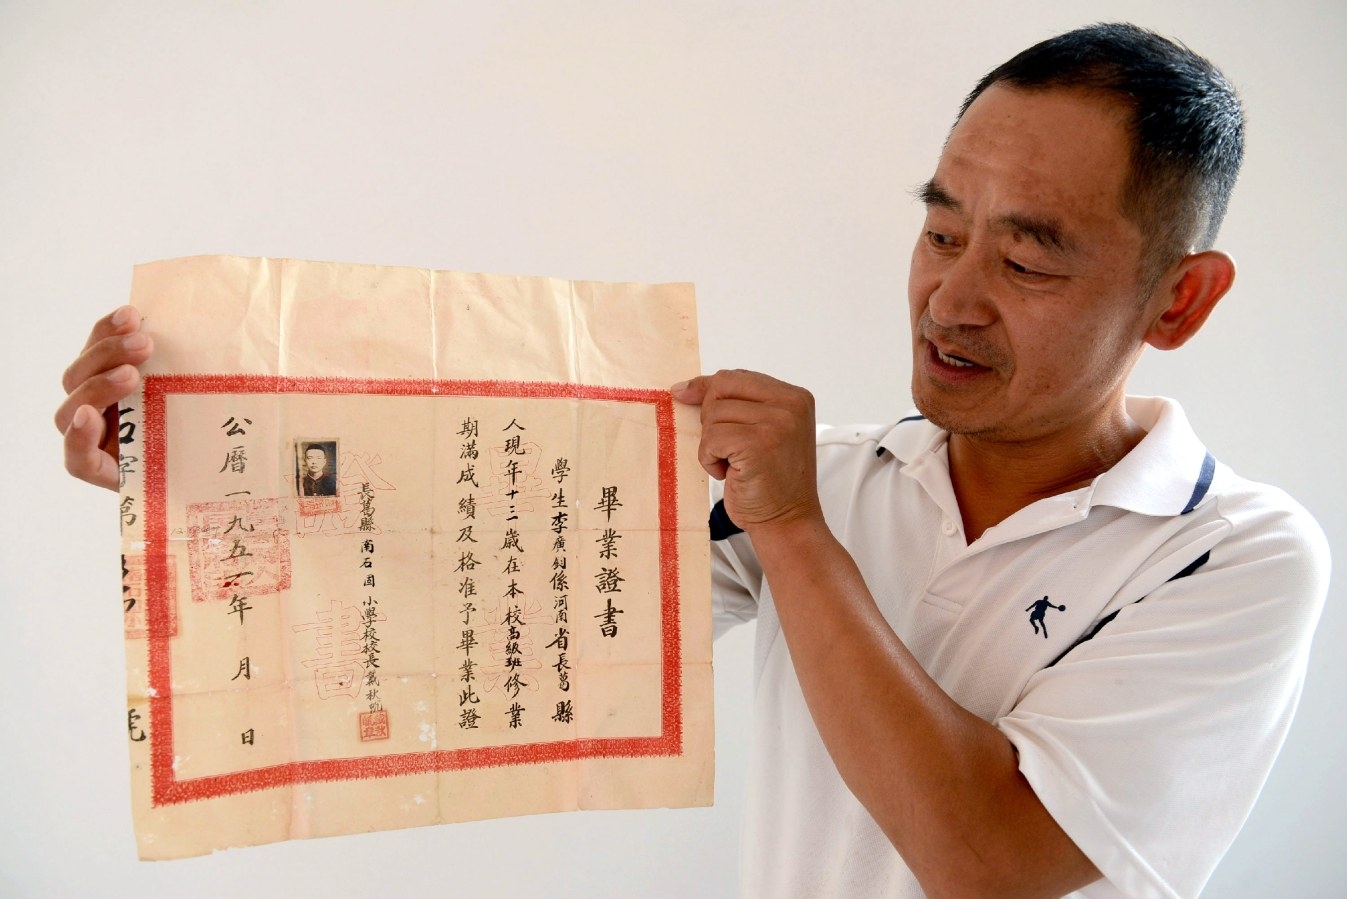 畢業證書
學生李廣釗係河南省長葛縣
人現年十三歲在本校高級班修業
期滿成績及格准予畢業此證
長葛縣南石固小學校校長 秋凱
公曆一九五一年 月 日
石字第 號
畢業
證書